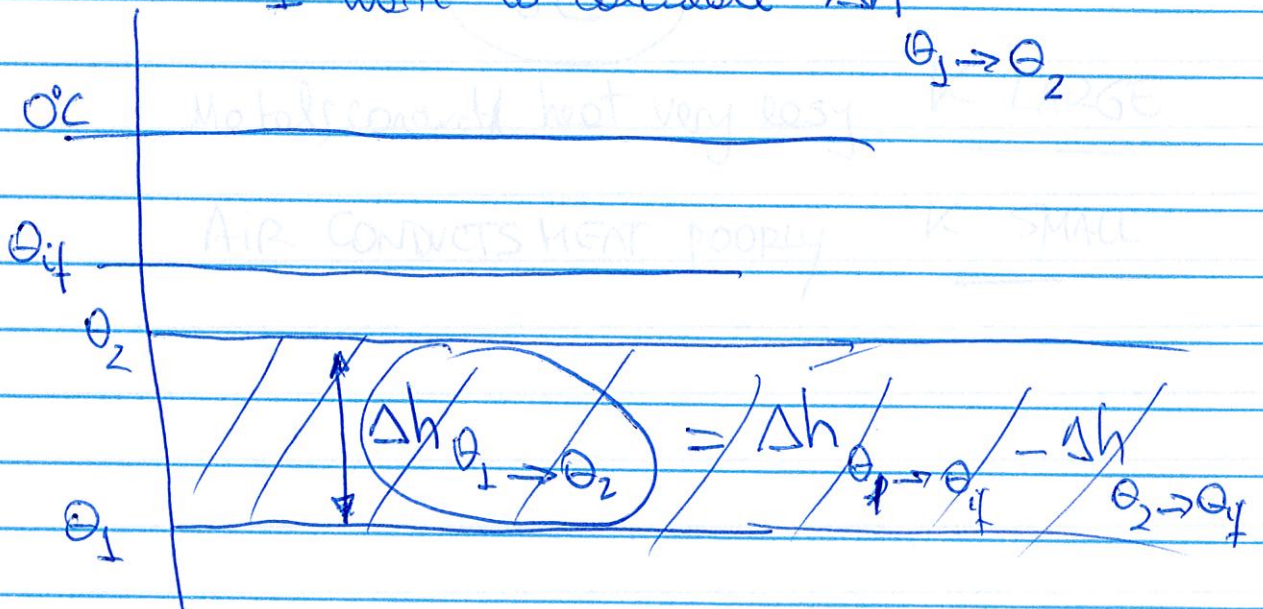 I want to calculate Δh
θ₁ → θ₂
0°C
Metals conduct heat very easy K - LARGE
θif
AIR CONDUCTS HEAT POORLY K SMALL
θ₂
Δh θ₁ → θ₂ = Δh θ₁ → θif - Δh θ₂ → θif
θ₁